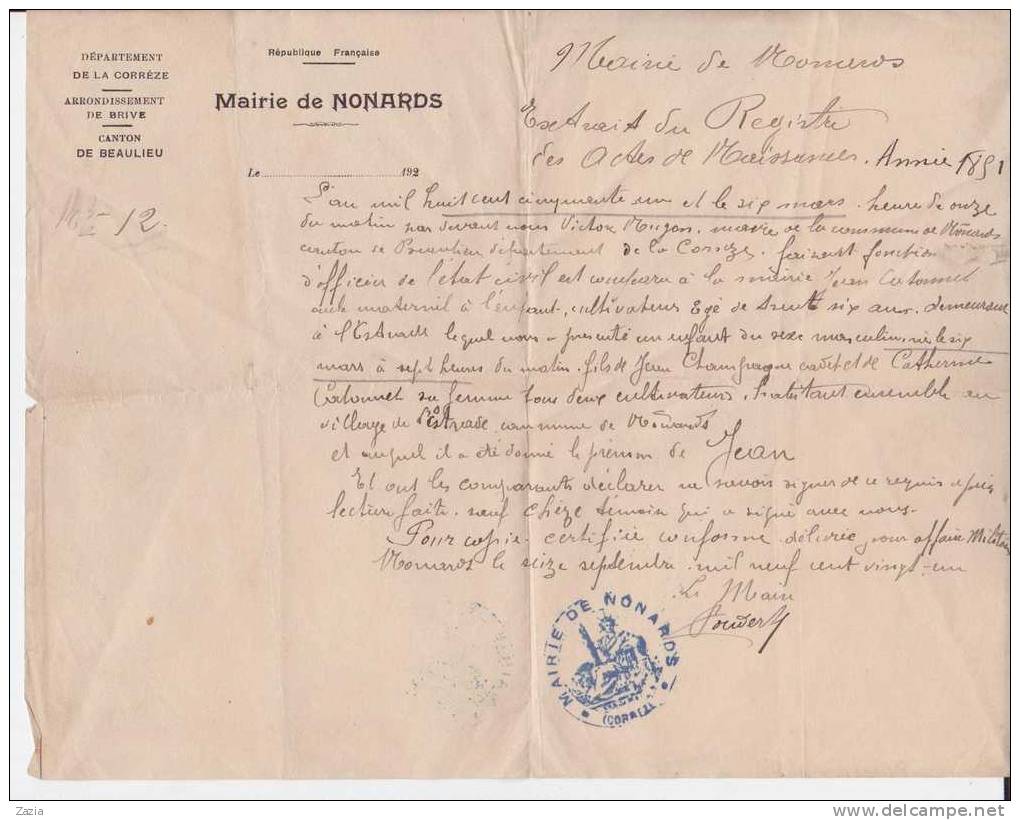 DÉPARTEMENT
DE LA CORRÈZE
ARRONDISSEMENT
DE BRIVE
CANTON
DE BEAULIEU
République Française
Mairie de NONARDS
Le 192
12.
Mairie de Nonards
Extrait du Registre
des Actes de Naissances. Année 1851
L'an mil huit cent cinquante un et le six mars. heure de onze
du matin par devant nous Victor maire de la commune de Nonards
canton de Beaulieu département de la Corrèze. faisant fonction
d'officier de l'état civil est comparu à la mairie Jean Catonnet
oncle maternel à l'enfant, cultivateur Egé de trente six ans. demeurant
à l'Estrade lequel nous a présenté un enfant du sexe masculin né le six
mars à sept heures du matin. fils de Jean Champagne cadet et de Catherine
Catonnet sa femme tous deux cultivateurs, habitant ensemble au
village de l'Estrade commune de Nonards
et auquel il a été donné le prénom de Jean
Et ont les comparants déclarer ne savoir signer de ce requis après
lecture faite. sauf Chèze témoin qui a signé avec nous.
Pour copie certifiée conforme délivrée pour affaire Militaire
Nonards le seize septembre mil neuf cent vingt-un
Le Maire
MAIRIE DE NONARDS
(CORRÈZE)
Zazia
http://www.delcampe.net